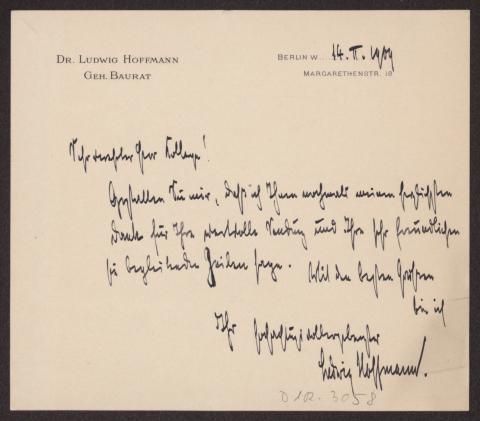 Dr. Ludwig Hoffmann
Geh. Baurat
Berlin W. 14. II. 1909
Margarethenstr. 18
Sehr verehrter Herr Kollege!
Gestatten Sie mir, daß ich Ihnen nochmals meinen herzlichsten
Dank für Ihre wertvolle Sendung und Ihre sehr freundlichen
sie begleitenden Zeilen sage. Mit den besten Grüßen
bin ich
Ihr hochachtungsvollergebenster
Ludwig Hoffmann.
3058